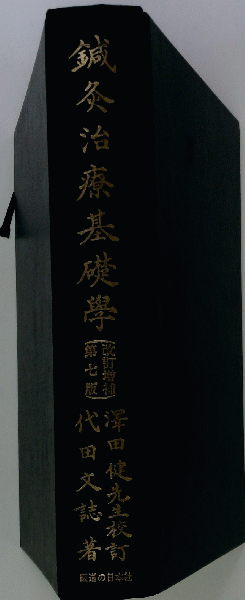 鍼灸治療基礎學
(改訂増補
第七版)
澤田健先生校訂
代田文誌 著
醫道の日本社